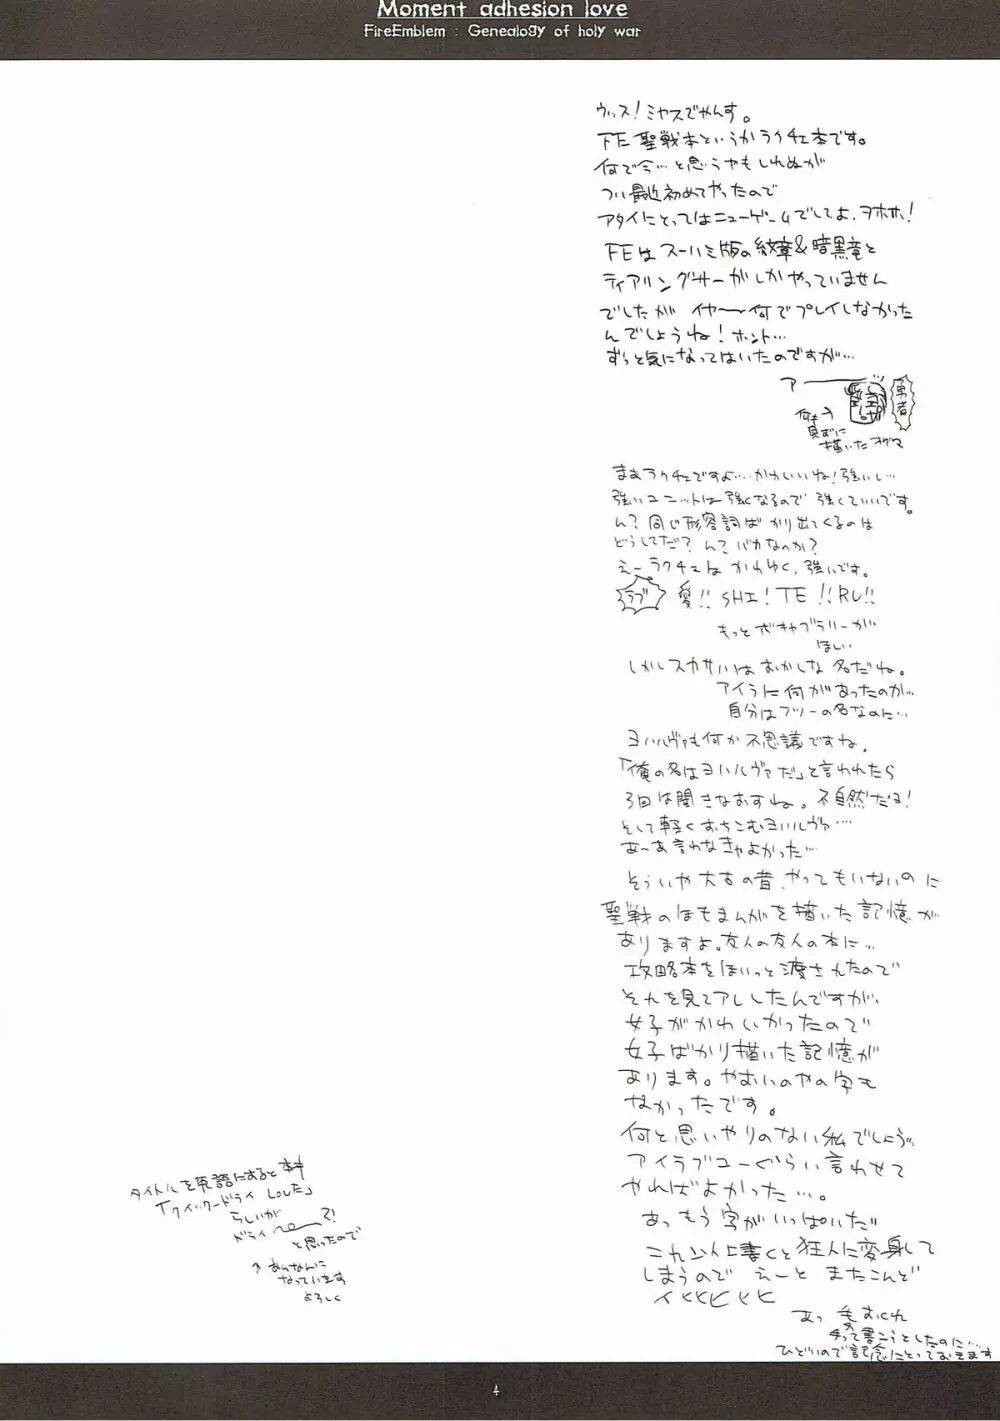 Moment adhesion love
FireEmblem : Genealogy of holy war
ウッス！ミヤスでやんす。
FE聖戦本というかラクチェ本です。
何で今…と思うやもしれぬが
つい最近初めてやったので
アタイにとってはニューゲームでしてよ、ヲホホ！
FEはスーハミ版の紋章&暗黒竜と
ティアリングサーガしかやっていません
でしたが イヤ～何でプレイしなかった
んでしょうね！ホント…
ずっと気になってはいたのですが…
アー
勇者
何も
見ずに
描いたオグマ
まあラクチェですよ…かわいいね！強いし…
強いユニットは強くなるので強くていいです。
ん？同じ形容詞ばかり出てくるのは
どうしてだ？ん？バカなのか？
えーラクチェはかわゆく、強いです。
ラブ 愛!! SHI! TE!! RU!!
もっとボキャブラリーが
ほしい
しかしスカサハはおかしな名だね。
アイラに何があったのか…
自分はフツーの名なのに…
ヨハルヴァも何か不思議ですね。
「俺の名はヨハルヴァだ」と言われたら
3回は聞きなおすね。不自然だヨ！
そして軽くおちこむヨハルヴァ…
あーあ言わなきゃよかった…
そういや大古の昔、やってもいないのに
聖戦のほもまんがを描いた記憶が
ありますよ。友人の友人の本に…
攻略本をほいっと渡されたので
それを見てアレしたんですが、
女子がかわいかったので
女子ばかり描いた記憶が
あります。やおいのやの字も
なかったです。
何と思いやりのない私でしょう。
アイラブユーぐらい言わせて
やればよかった…。
あっもう字がいっぱいだ
これ以上書くと狂人に変身して
しまうので えーと またこんど
イヒヒヒヒヒ
あっ
って書こうとしたのに…
ひどいので記念にとっておきます
タイトルを英語にすると
「クイックードライ Loveだ」
らしいが
ドライ
て！
と思ったので
↑あんなんに
なっています
よろしく
4